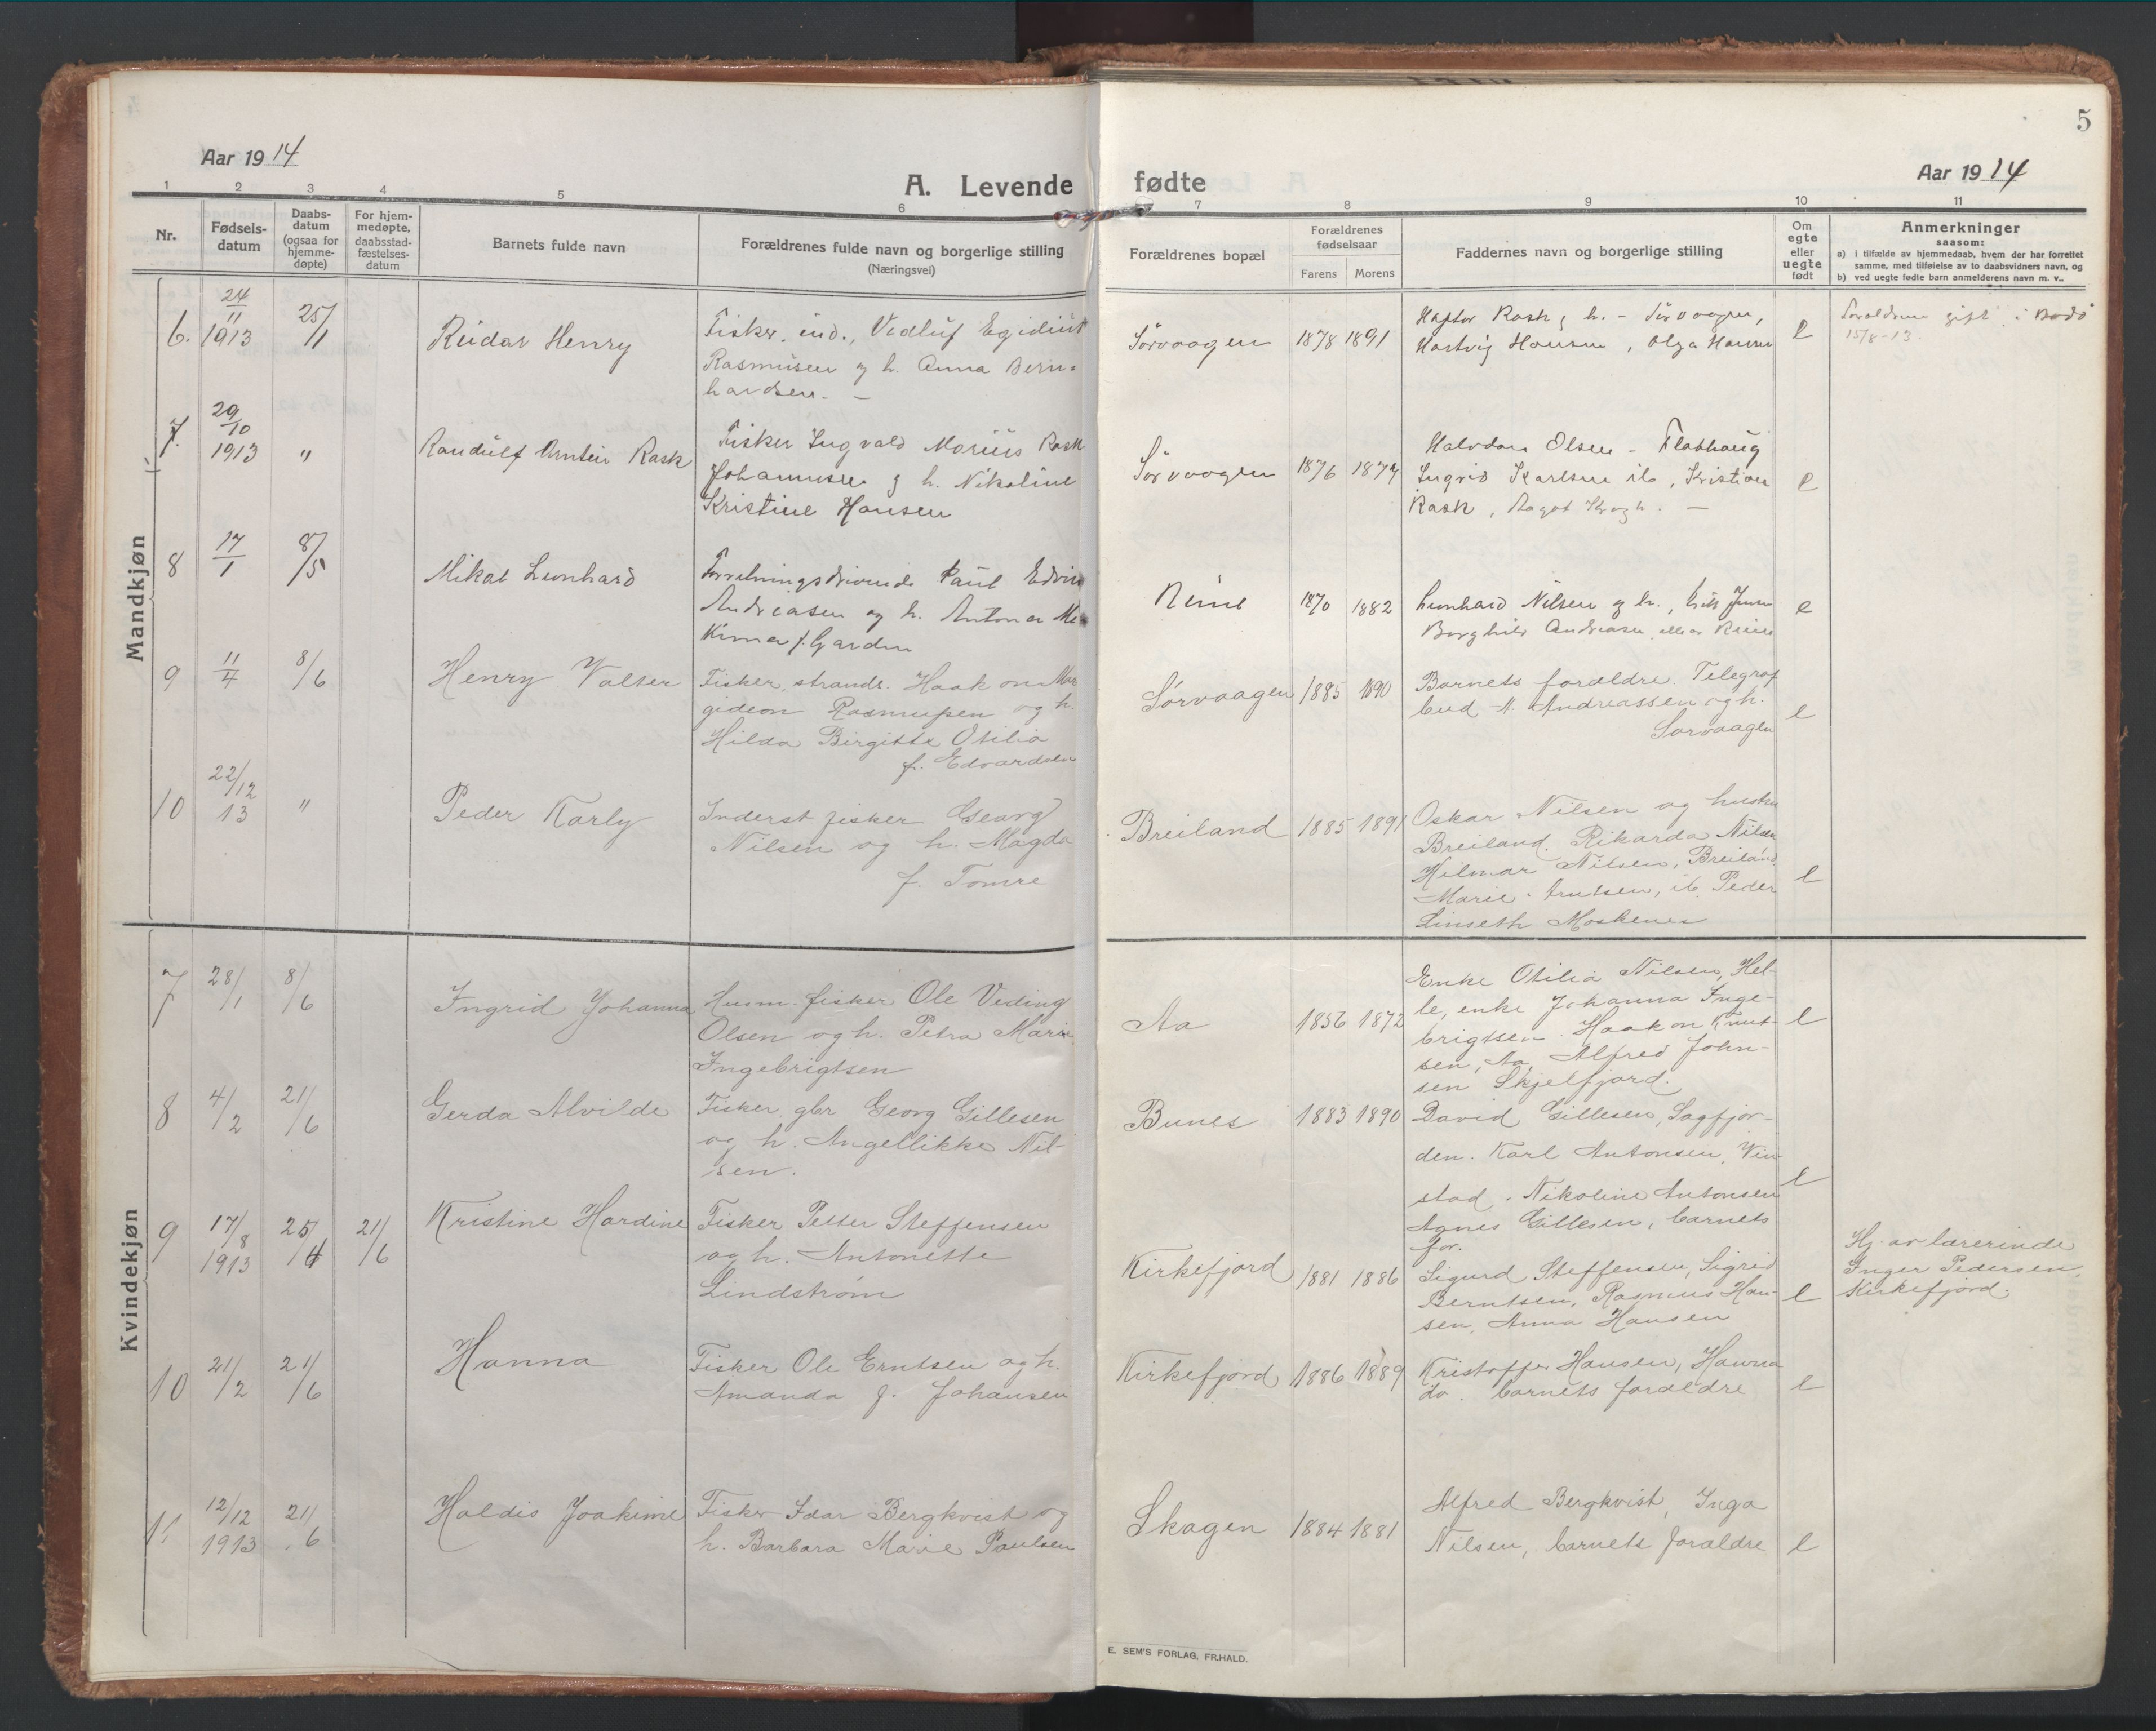 5
Aar 1914
A. Levende fødte
Aar 1914
1 2 3 4 5 6 7 8 9 10 11
Nr.
Fødsels-
datum
Daabs-
datum
(ogsaa for
hjemme-
døpte)
For hjem-
medøpte,
daabsstad-
fæstelses-
datum
Barnets fulde navn
Forældrenes fulde navn og borgerlige stilling
(Næringsvei)
Forældrenes bopæl
Forældrenes
fødselsaar
Farens Morens
Faddernes navn og borgerlige stilling
Om
egte
eller
uegte
født
Anmerkninger
saasom:
a) i tilfælde av hjemmedaab, hvem der har forrettet
samme, med tilføielse av to daabsvidners navn, og
b) ved uegte fødte barn anmelderens navn m. v..
Mandkjøn
6. 24/11 1913
25/1
Reidar Henry
Fisker, ind., Vedluf Egidius
Rasmusen og h. Anna Bern-
hardsen. –
Sörvaagen
1878 1891
Haftor Rask og h. – Sörvaagen,
Hartvig Hansen, Olga Hansen
e
Forældrene gift i Bodö
15/8-13.
7. 29/10 1913
"
Randulf Arntein Rask
Fisker Ingvald Marius Rask
Johannesen og h. Nikoline
Kristine Hansen
Sörvaagen
1876 1874
Halvdan Olsen – Flathaug
Ingrid Karlsen ib, Kristian
Rask, Aagot Krogh. –
e
8 17/1
8/5
Mikal Leonhard
Forretningsdrivende Paul Edvin
Andreasen og h. Antona Me
kima f. Garden
Reine
1870 1882
Leonhard Nilsen og h., Jensen
Borghild Andreasen, alle av Reine
e
9 11/4
8/6
Henry Valter
Fisker, strands. Haakon Mar
gideon Rasmussen og h.
Hilda Birgitte Otilia
f. Edvardsen
Sørvaagen
1885 1890
Barnets forældre. Telegraf
bud A. Andreassen og h.
Sørvaagen
e
10 22/12 13
"
Peder Karly
Inderst fisker Georg
Nilsen og h. Magda
f. Tomre
Breiland
1885 1891
Oskar Nilsen og hustru
Breiland. Rikarda Nilsen
Hilmar Nilsen, Breiland
Marie Arntsen, ib. Peder
Linseth Moskenes
e
Kvindekjøn
7 28/1
8/6
Ingrid Johanna
Husm. fisker Ole Veding
Olsen og h. Petra Marie
Ingebrigtsen
Aa
1856 1872
Enke Otilia Nilsen, Hel-
le, enke Johanna Inge-
brigtsen. Haakon Knut-
sen, Aa, Alfred John-
sen Skjelfjord.
e
8 4/2
21/6
Gerda Alvilde
Fisker, gbr Georg Gillesen
og h. Angellikke Nil-
sen.
Bunes
1883 1890
David Gillesen, Sagfjor-
den. Karl Antonsen, Vin-
stad. Nikoline Antonsen
Agnes Gillesen, barnets
for.
e
9 17/8 1913
25/4
21/6
Kristine Hardine
Fisker Petter Steffensen
og h. Antonette
Lindstrøm
Kirkefjord
1881 1886
Sigurd Steffensen, Sigrid
Berntsen, Rasmus Han-
sen, Anna Hansen
e
Hj. av lærerinde
Inger Pedersen,
Kirkefjord.
10 21/2
21/6
Hanna
Fisker Ole Erntsen og h.
Amanda f. Johansen
Kirkefjord
1886 1889
Kristoffer Hansen, Hanna
do. barnets forældre
e
11 12/12 1913
21/6
Haldis Joakime
Fisker Idar Bergkvist og
h. Barbara Marie Paulsen
Skagen
1884 1881
Alfred Bergkvist, Inga
Nilsen, barnets forældre
e
E. SEM'S FORLAG, FR.HALD.